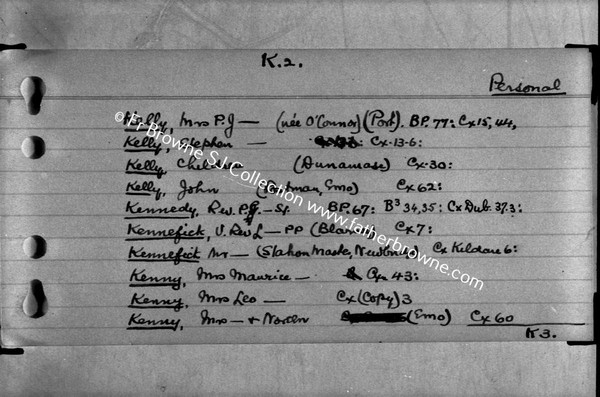 K.2.
Personal
Kelly, Mrs P.J — (née O'Connor) (Port). BP. 77: Cx 15, 44,
Kelly, Stephen — Cx-13-6:
Kelly, (Dunamase) Cx-30:
Kelly, John (Emo) Cx 62:
Kennedy, Rev. P.G. – SJ. BP. 67: B³ 34, 35: Cx Dub. 37. 3:
Kennefick, V. Rev L — PP Cx 7:
Kennefick Mr — (Station Master, Newbridge) Cx Kildare 6:
Kenny, Mrs Maurice — Cx 43:
Kenny, Mrs Leo — Cx (Copy) 3
Kenny, Mrs — + Noreen (Emo) Cx 60
K3.
© Fr Browne SJ Collection www.fatherbrowne.com